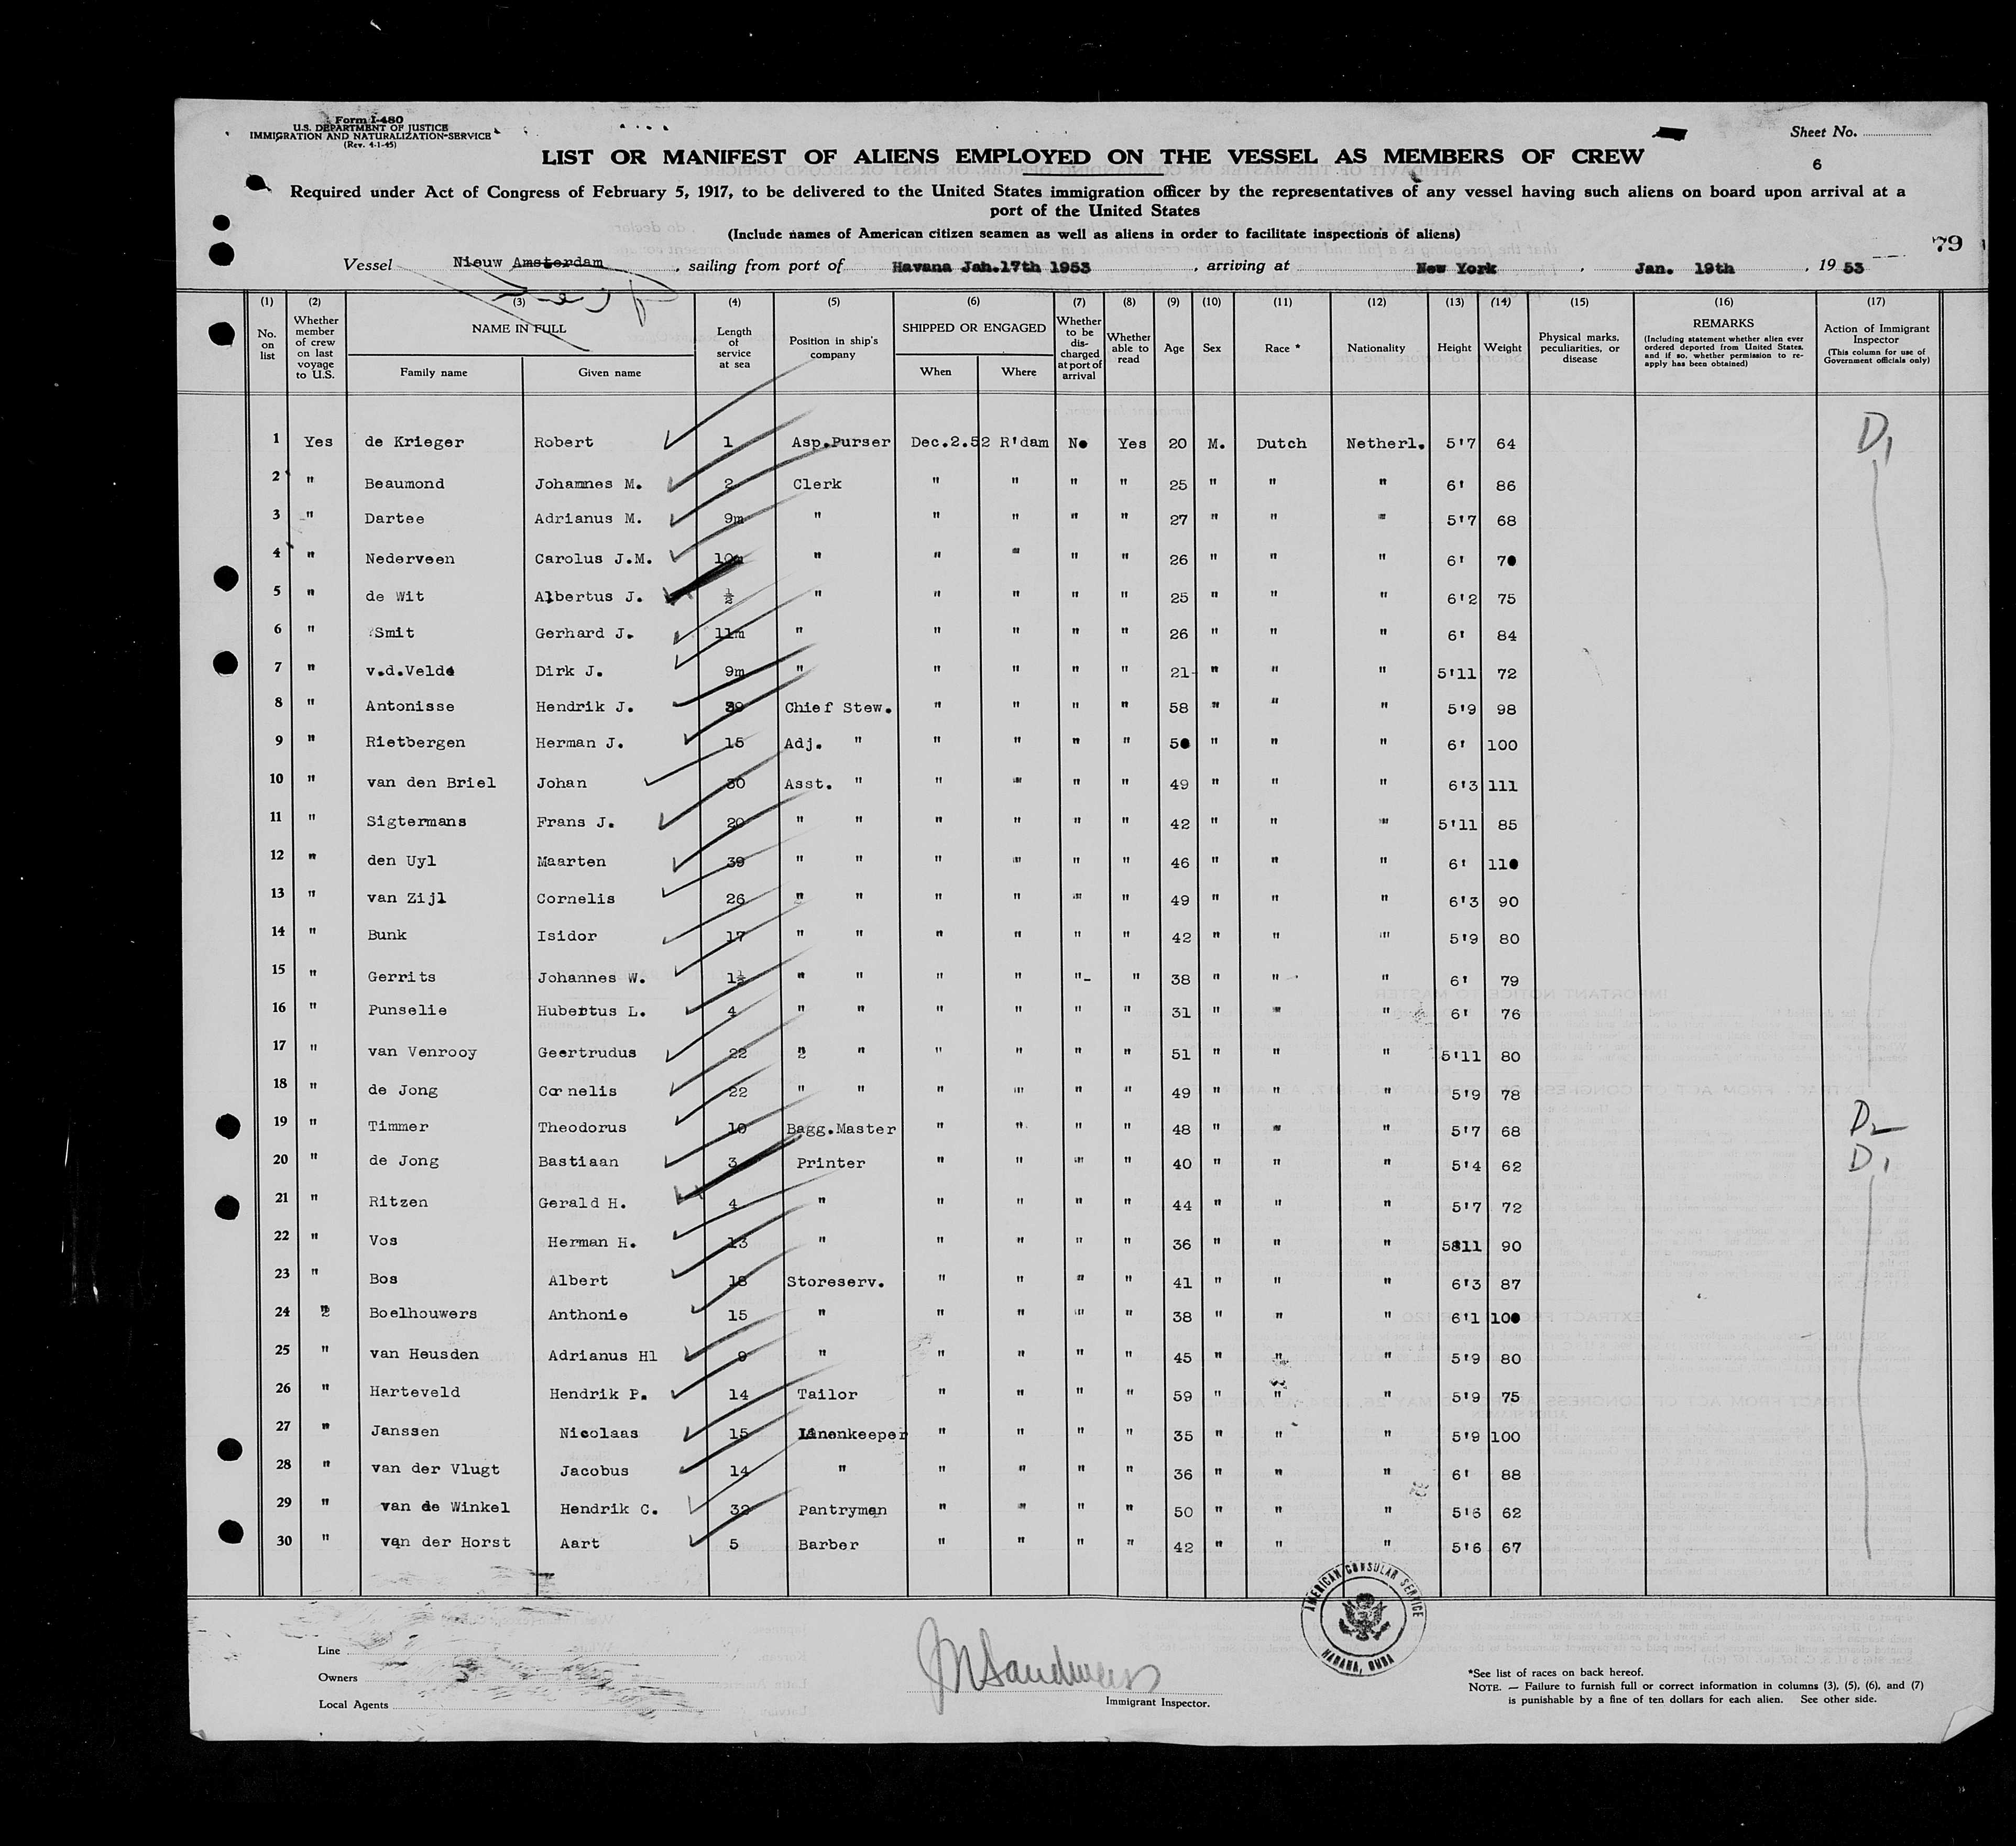 Form I-480
U.S. DEPARTMENT OF JUSTICE
IMMIGRATION AND NATURALIZATION SERVICE
(Rev. 4-1-45)
Sheet No.
6
LIST OR MANIFEST OF ALIENS EMPLOYED ON THE VESSEL AS MEMBERS OF CREW
Required under Act of Congress of February 5, 1917, to be delivered to the United States immigration officer by the representatives of any vessel having such aliens on board upon arrival at a
port of the United States
(Include names of American citizen seamen as well as aliens in order to facilitate inspections of aliens)
79
Vessel Nieuw Amsterdam, sailing from port of Havana Jan.17th 1953, arriving at New York, Jan. 19th, 19 53
(1) (2) (3) (4) (5) (6) (7) (8) (9) (10) (11) (12) (13) (14) (15) (16) (17)
No. on list
Whether member of crew on last voyage to U.S.
NAME IN FULL
Family name
Given name
Length of service at sea
Position in ship's company
SHIPPED OR ENGAGED
When
Where
Whether to be discharged at port of arrival
Whether able to read
Age
Sex
Race *
Nationality
Height
Weight
Physical marks, peculiarities, or disease
REMARKS
(Including statement whether alien ever ordered deported from United States, and if so, whether permission to reapply has been obtained)
Action of Immigrant Inspector
(This column for use of Government officials only)
1 Yes de Krieger Robert 1 Asp.Purser Dec.2.52 R'dam No Yes 20 M. Dutch Netherl. 5'7 64 D1
2 " Beaumond Johannes M. 2 Clerk " " " " 25 " " " 6' 86
3 " Dartee Adrianus M. 9m " " " " " 27 " " " 5'7 68
4 " Nederveen Carolus J.M. 10m " " " " " 26 " " " 6' 70
5 " de Wit Albertus J. ½ " " " " " 25 " " " 6'2 75
6 " Smit Gerhard J. 11m " " " " " 26 " " " 6' 84
7 " v.d.Velde Dirk J. 9m " " " " " 21 " " " 5'11 72
8 " Antonisse Hendrik J. Chief Stew. " " " " 58 " " " 5'9 98
9 " Rietbergen Herman J. 15 Adj. " " " " " 50 " " " 6' 100
10 " van den Briel Johan 30 Asst. " " " " " 49 " " " 6'3 111
11 " Sigtermans Frans J. 20 " " " " " " 42 " " " 5'11 85
12 " den Uyl Maarten 39 " " " " " " 46 " " " 6' 110
13 " van Zijl Cornelis 26 " " " " " " 49 " " " 6'3 90
14 " Bunk Isidor 17 " " " " " " 42 " " " 5'9 80
15 " Gerrits Johannes W. 1½ " " " " "- " 38 " " " 6' 79
16 " Punselie Hubertus L. 4 " " " " " " 31 " " " 6' 76
17 " van Venrooy Geertrudus 22 2 " " " " " 51 " " " 5'11 80
18 " de Jong Cornelis 22 " " " " " " 49 " " " 5'9 78
19 " Timmer Theodorus 10 Bagg.Master " " " " 48 " " " 5'7 68 D2
20 " de Jong Bastiaan 3 Printer " " " " 40 " " " 5'4 62 D1
21 " Ritzen Gerald H. 4 " " " " " 44 " " " 5'7 72
22 " Vos Herman H. 13 " " " " " 36 " " " 5811 90
23 " Bos Albert 18 Storeserv. " " " " 41 " " " 6'3 87
24 2 Boelhouwers Anthonie 15 " " " " " 38 " " " 6'1 100
25 " van Heusden Adrianus Hl 9 " " " " " 45 " " " 5'9 80
26 " Harteveld Hendrik P. 14 Tailor " " " " 59 " " " 5'9 75
27 " Janssen Nicolaas 15 Linenkeeper " " " " 35 " " " 5'9 100
28 " van der Vlugt Jacobus 14 " " " " " 36 " " " 6' 88
29 " van de Winkel Hendrik C. 32 Pantryman " " " " 50 " " " 5'6 62
30 " van der Horst Aart 5 Barber " " " " 42 " " " 5'6 67
AMERICAN CONSULAR SERVICE
HABANA, CUBA
Line
Owners
Local Agents
Immigrant Inspector.
*See list of races on back hereof.
NOTE. — Failure to furnish full or correct information in columns (3), (5), (6), and (7)
is punishable by a fine of ten dollars for each alien. See other side.